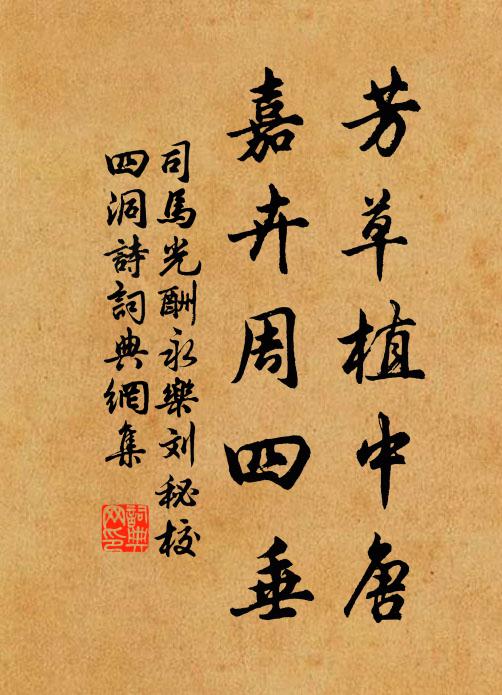 芳草植中唐
嘉卉周四垂
司馬光酬永樂刘秘校
四洞詩詞典網集
詞典網印